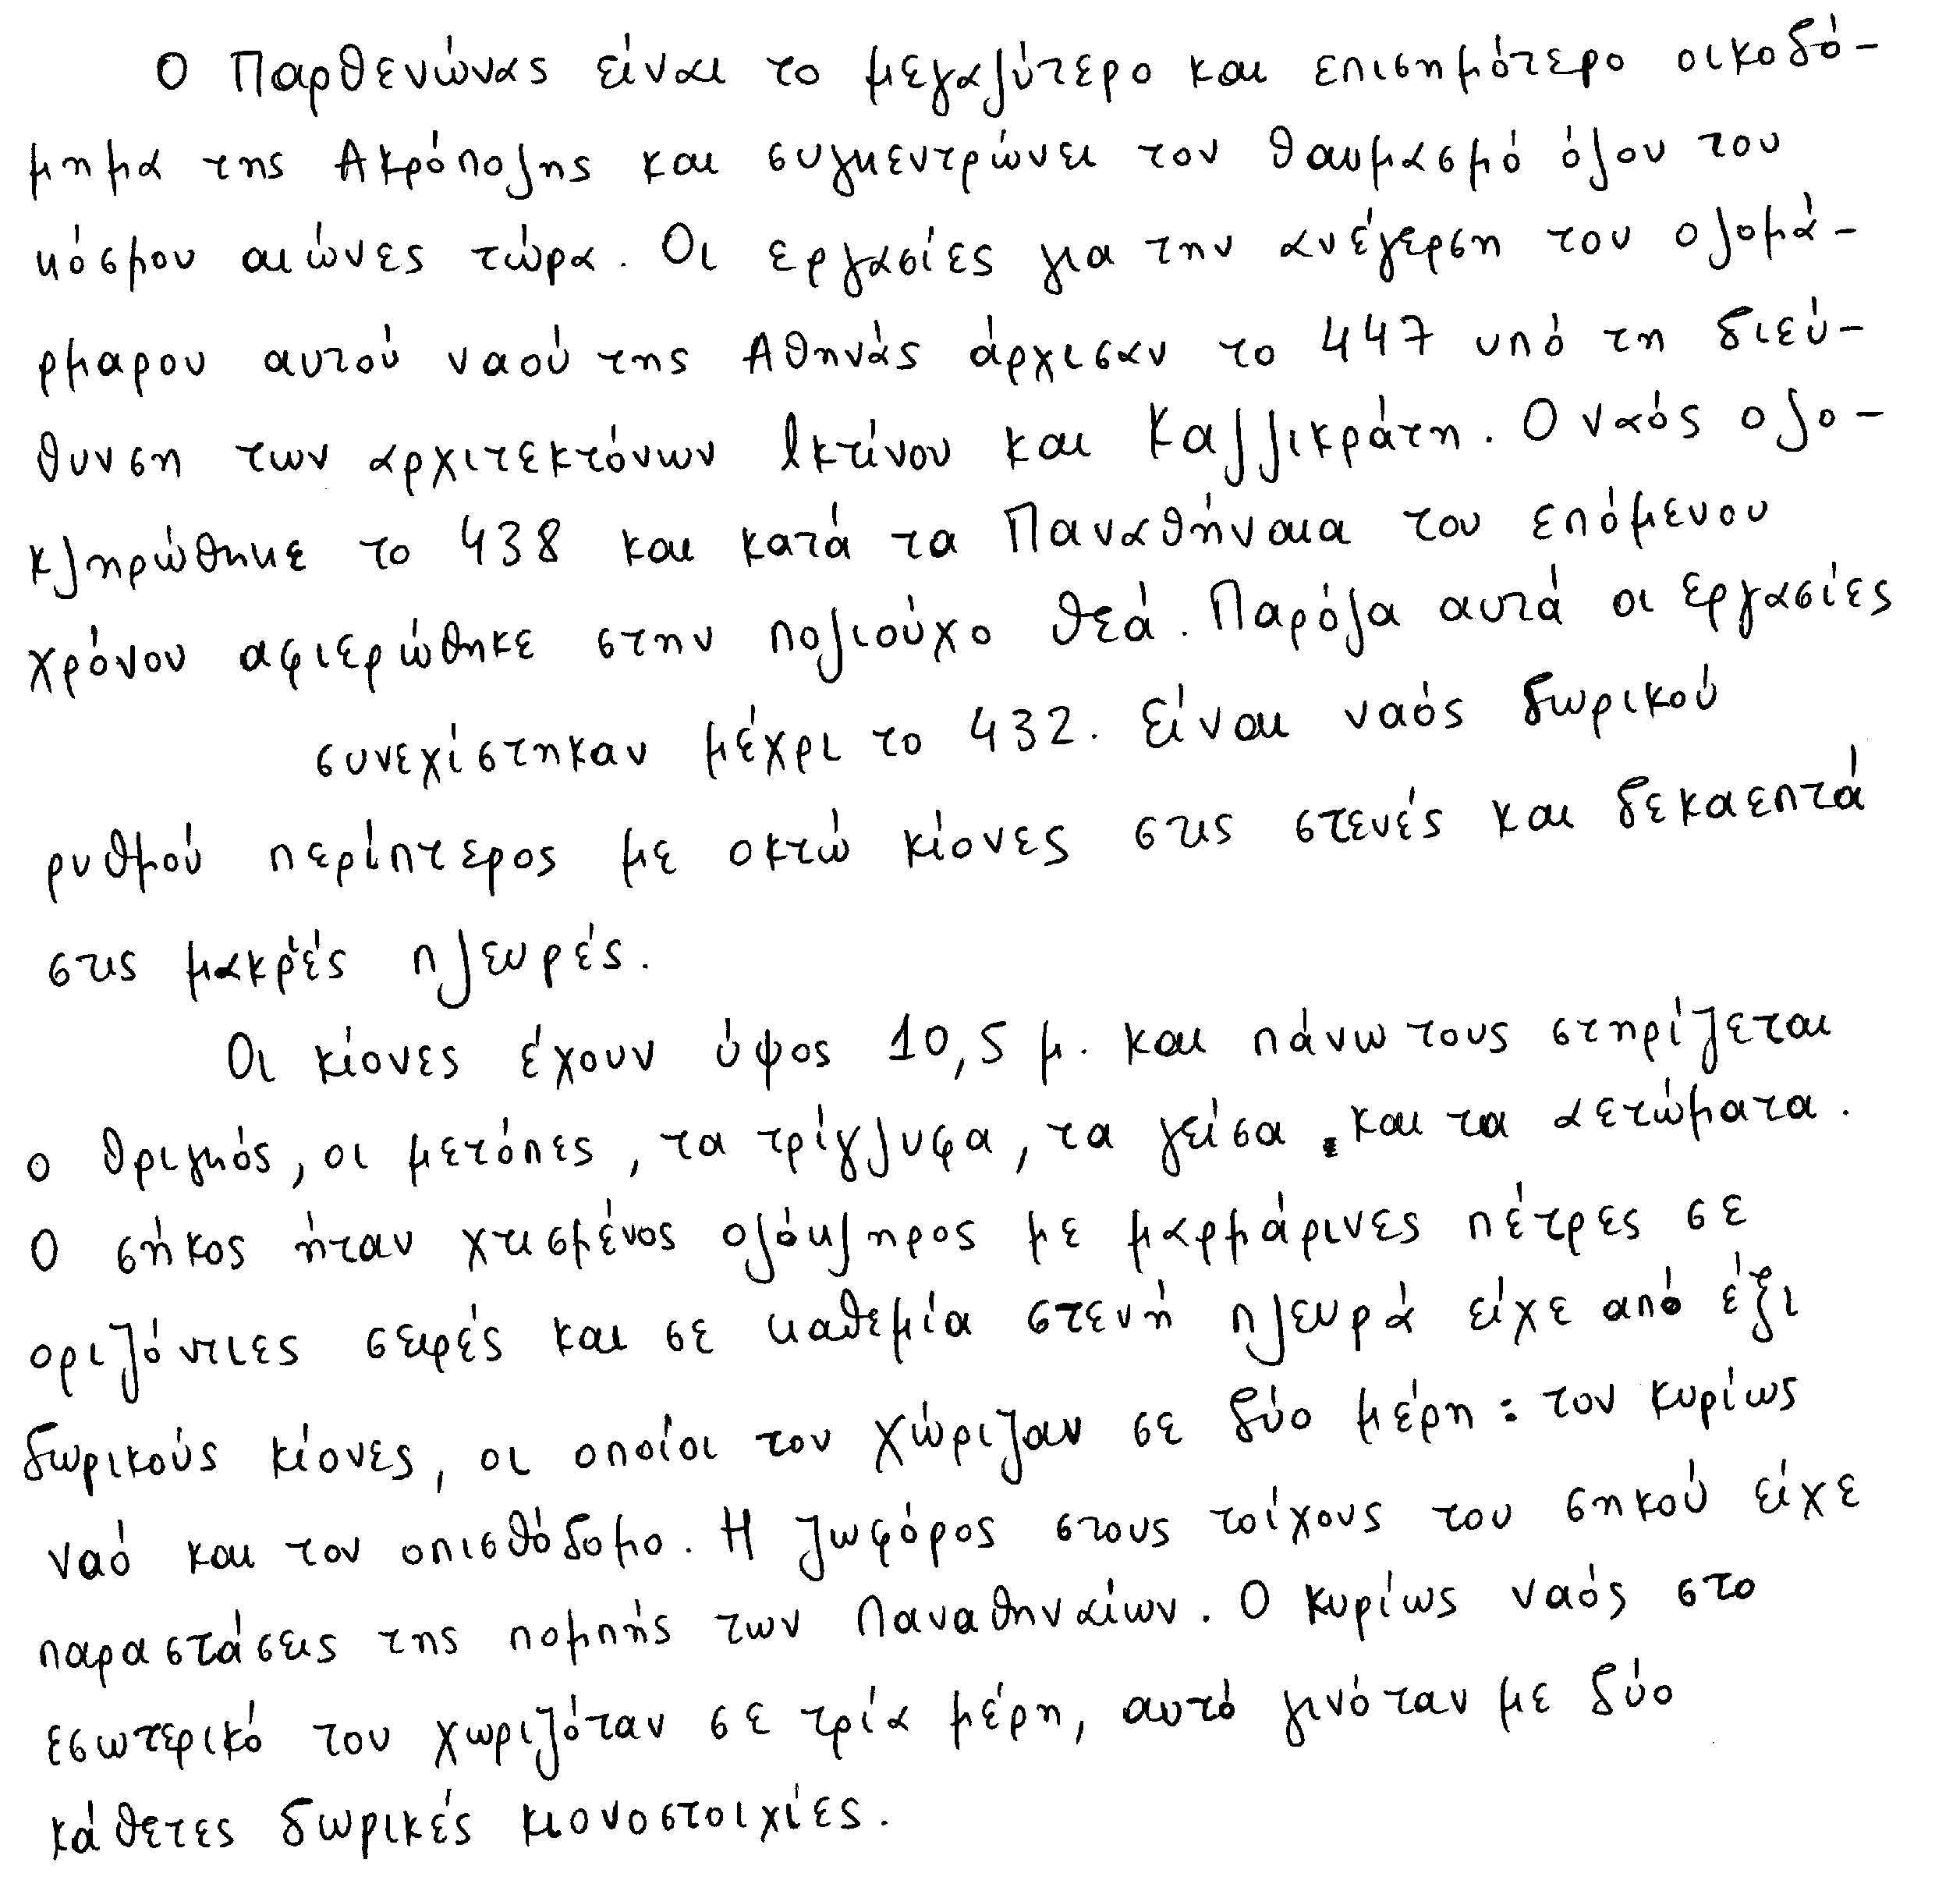 Ο Παρθενώνας είναι το μεγαλύτερο και επισημότερο οικοδό-
μημα της Ακρόπολης και συγκεντρώνει τον θαυμασμό όλου του
κόσμου αιώνες τώρα. Οι εργασίες για την ανέγερση του ολομά-
ρμαρου αυτού ναού της Αθηνάς άρχισαν το 447 υπό τη διεύ-
θυνση των αρχιτεκτόνων Ικτίνου και Καλλικράτη. Ο ναός ολο-
κληρώθηκε το 438 και κατά τα Παναθήναια του επόμενου
χρόνου αφιερώθηκε στην πολιούχο θεά. Παρόλα αυτά οι εργασίες
συνεχίστηκαν μέχρι το 432. Είναι ναός δωρικού
ρυθμού περίπτερος με οκτώ κίονες στις στενές και δεκαεπτά
στις μακρές πλευρές.
Οι κίονες έχουν ύψος 10,5 μ. και πάνω τους στηρίζεται
ο θριγκός, οι μετόπες, τα τρίγλυφα, τα γείσα και τα αετώματα.
Ο σήκος ήταν χτισμένος ολόκληρος με μαρμάρινες πέτρες σε
οριζόντιες σειρές και σε καθεμία στενή πλευρά είχε από έξι
δωρικούς κίονες, οι οποίοι τον χώριζαν σε δύο μέρη: τον κυρίως
ναό και τον οπισθόδομο. Η ζωφόρος στους τοίχους του σηκού είχε
παραστάσεις της πομπής των Παναθηναίων. Ο κυρίως ναός στο
εσωτερικό του χωριζόταν σε τρία μέρη, αυτό γινόταν με δύο
κάθετες δωρικές κιονοστοιχίες.